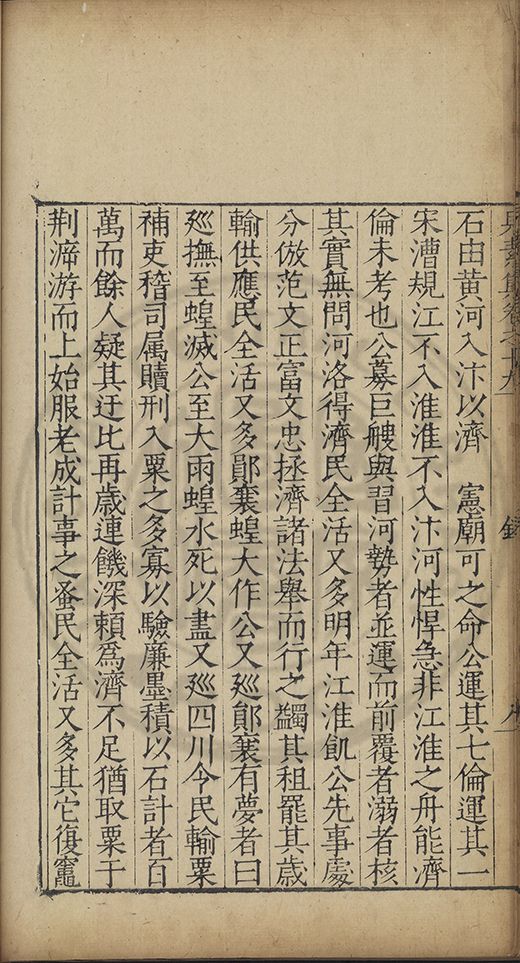 石由黃河入汴以濟　憲廟可之命公運其七倫運其一
宋漕規江不入淮淮不入汴河性悍急非江淮之舟能濟
倫未考也公募巨艘與習河勢者並運而前覆者溺者核
其實無問河洛得濟民全活又多明年江淮飢公先事處
分倣范文正富文忠拯濟諸法舉而行之蠲其租罷其歳
輸供應民全活又多鄖襄蝗大作公又廵鄖襄有夢者曰
廵撫至蝗滅公至大雨蝗水死以盡又廵四川令民輸粟
補吏稽司属贖刑入粟之多寡以驗廉墨積以石計者百
萬而餘人疑其迂比再歳連饑深頼爲濟不足猶取粟于
荆㴑游而上始服老成計事之蚤民全活又多其它復竈